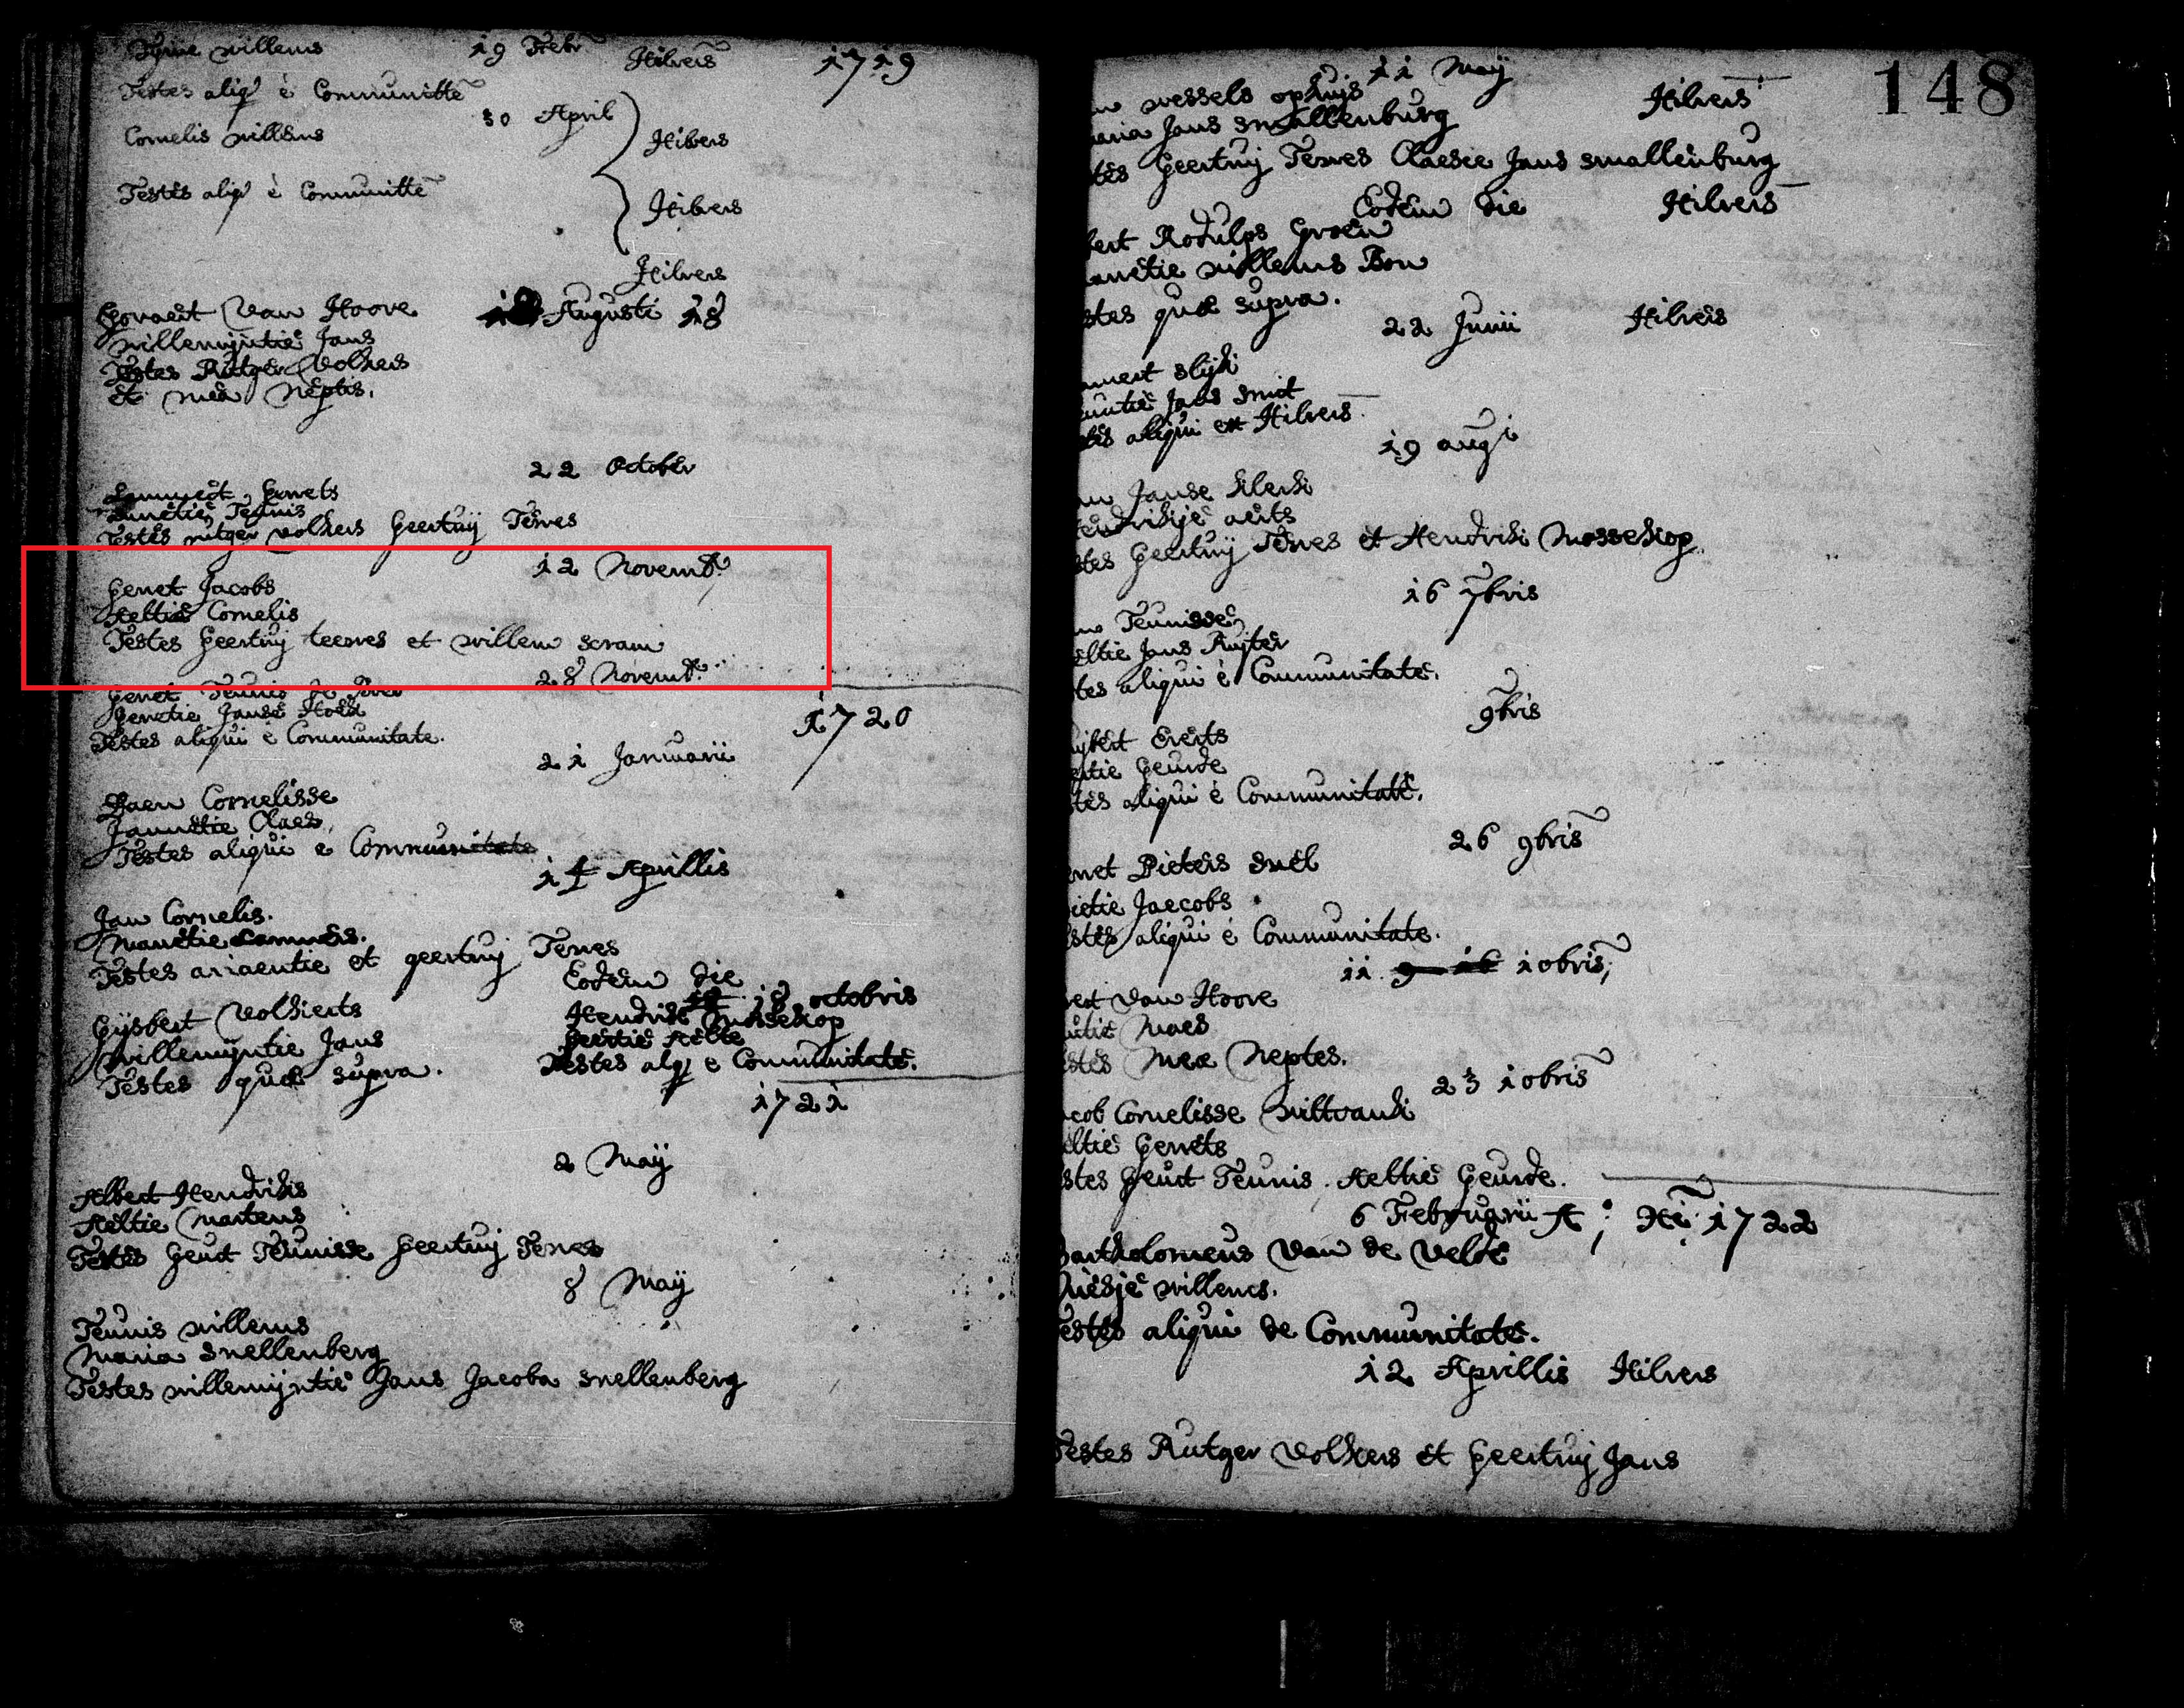 Tyme willems 19 Febr Hilvers 1719
Testes aliq è Communitte
30 April
Cornelis willems Hilvers
Testes aliq è Communitte Hilvers
Hilvers
Govaert Van Hoove 18 Augusti 18
willemijntie Jans
Testes Rutger Volkers
et mea Neptis.
22 October
Lammert Gerrets
Annetie Teunis
Testes rutger volkers Geertuij Terves
12 Novemb.
Gerret Jacobs
Aeltie Cornelis
Testes Geertuij teeves et willem scram
28 Novemb.
Gerret Teunis de
Gerretie Janse
Testes aliqui è Communitate.
1720
21 Januarii
Daen Cornelisse
Jannetie Claes
Testes aliqui e Communitate
14 Aprillis
Jan Cornelis.
Manetie Lammers.
Testes ariaentie et geertuij Terves
Eodem die
Gijsbert Volkierts
willemijntie Jans
Testes quae supra.
18 octobris
Hendrik Mossekop
Geertie Aelte
Testes alq e Communitate.
1721
2 Maij
Albert Hendriks
Aeltie Martens
Testes Geurt Teunisse Geertuij Terves
8 Maij
Teunis willems
Maria snellenberg
Testes willemijntie Jans Jacoba snellenberg
148
11 Maij Hilvers
wessels ophuijs
aria Jans smallenburg
tes Geertuij Terves Claesie Jans smallenburg
Eodem die Hilvers
bert Rodulps Groen
annetie willems Bon
stes quae supra.
22 Junii Hilvers
mert slijk
untie Jans smit
tes aliqui ex Hilvers
19 augi
Janse klerk
endrikije aerts
stes Geertuij Terves et Hendrik Mossekop
16 7bris
Teunisse
eltie Jans Ruijter
tes aliqui è Communitate.
9bris
ijbert Everts
etie Geurde
tes aliqui è Communitate.
26 9bris
erret Pieters snel
ietie Jaecobs
stes aliqui è Communitate.
11 9 16 10bris
ert van Hoove
utie Maes
stes Mea Neptes.
23 10bris
cob Cornelisse wiltvank
eltie Gerrets
stes Geurt Teunis. Aeltie Geurde.
6 Februarii 1722
Bartholomeus Van de Velde
willems.
estes aliqui de Communitate.
12 Aprillis Hilvers
Testes Rutger volkers et Geertuij Jans